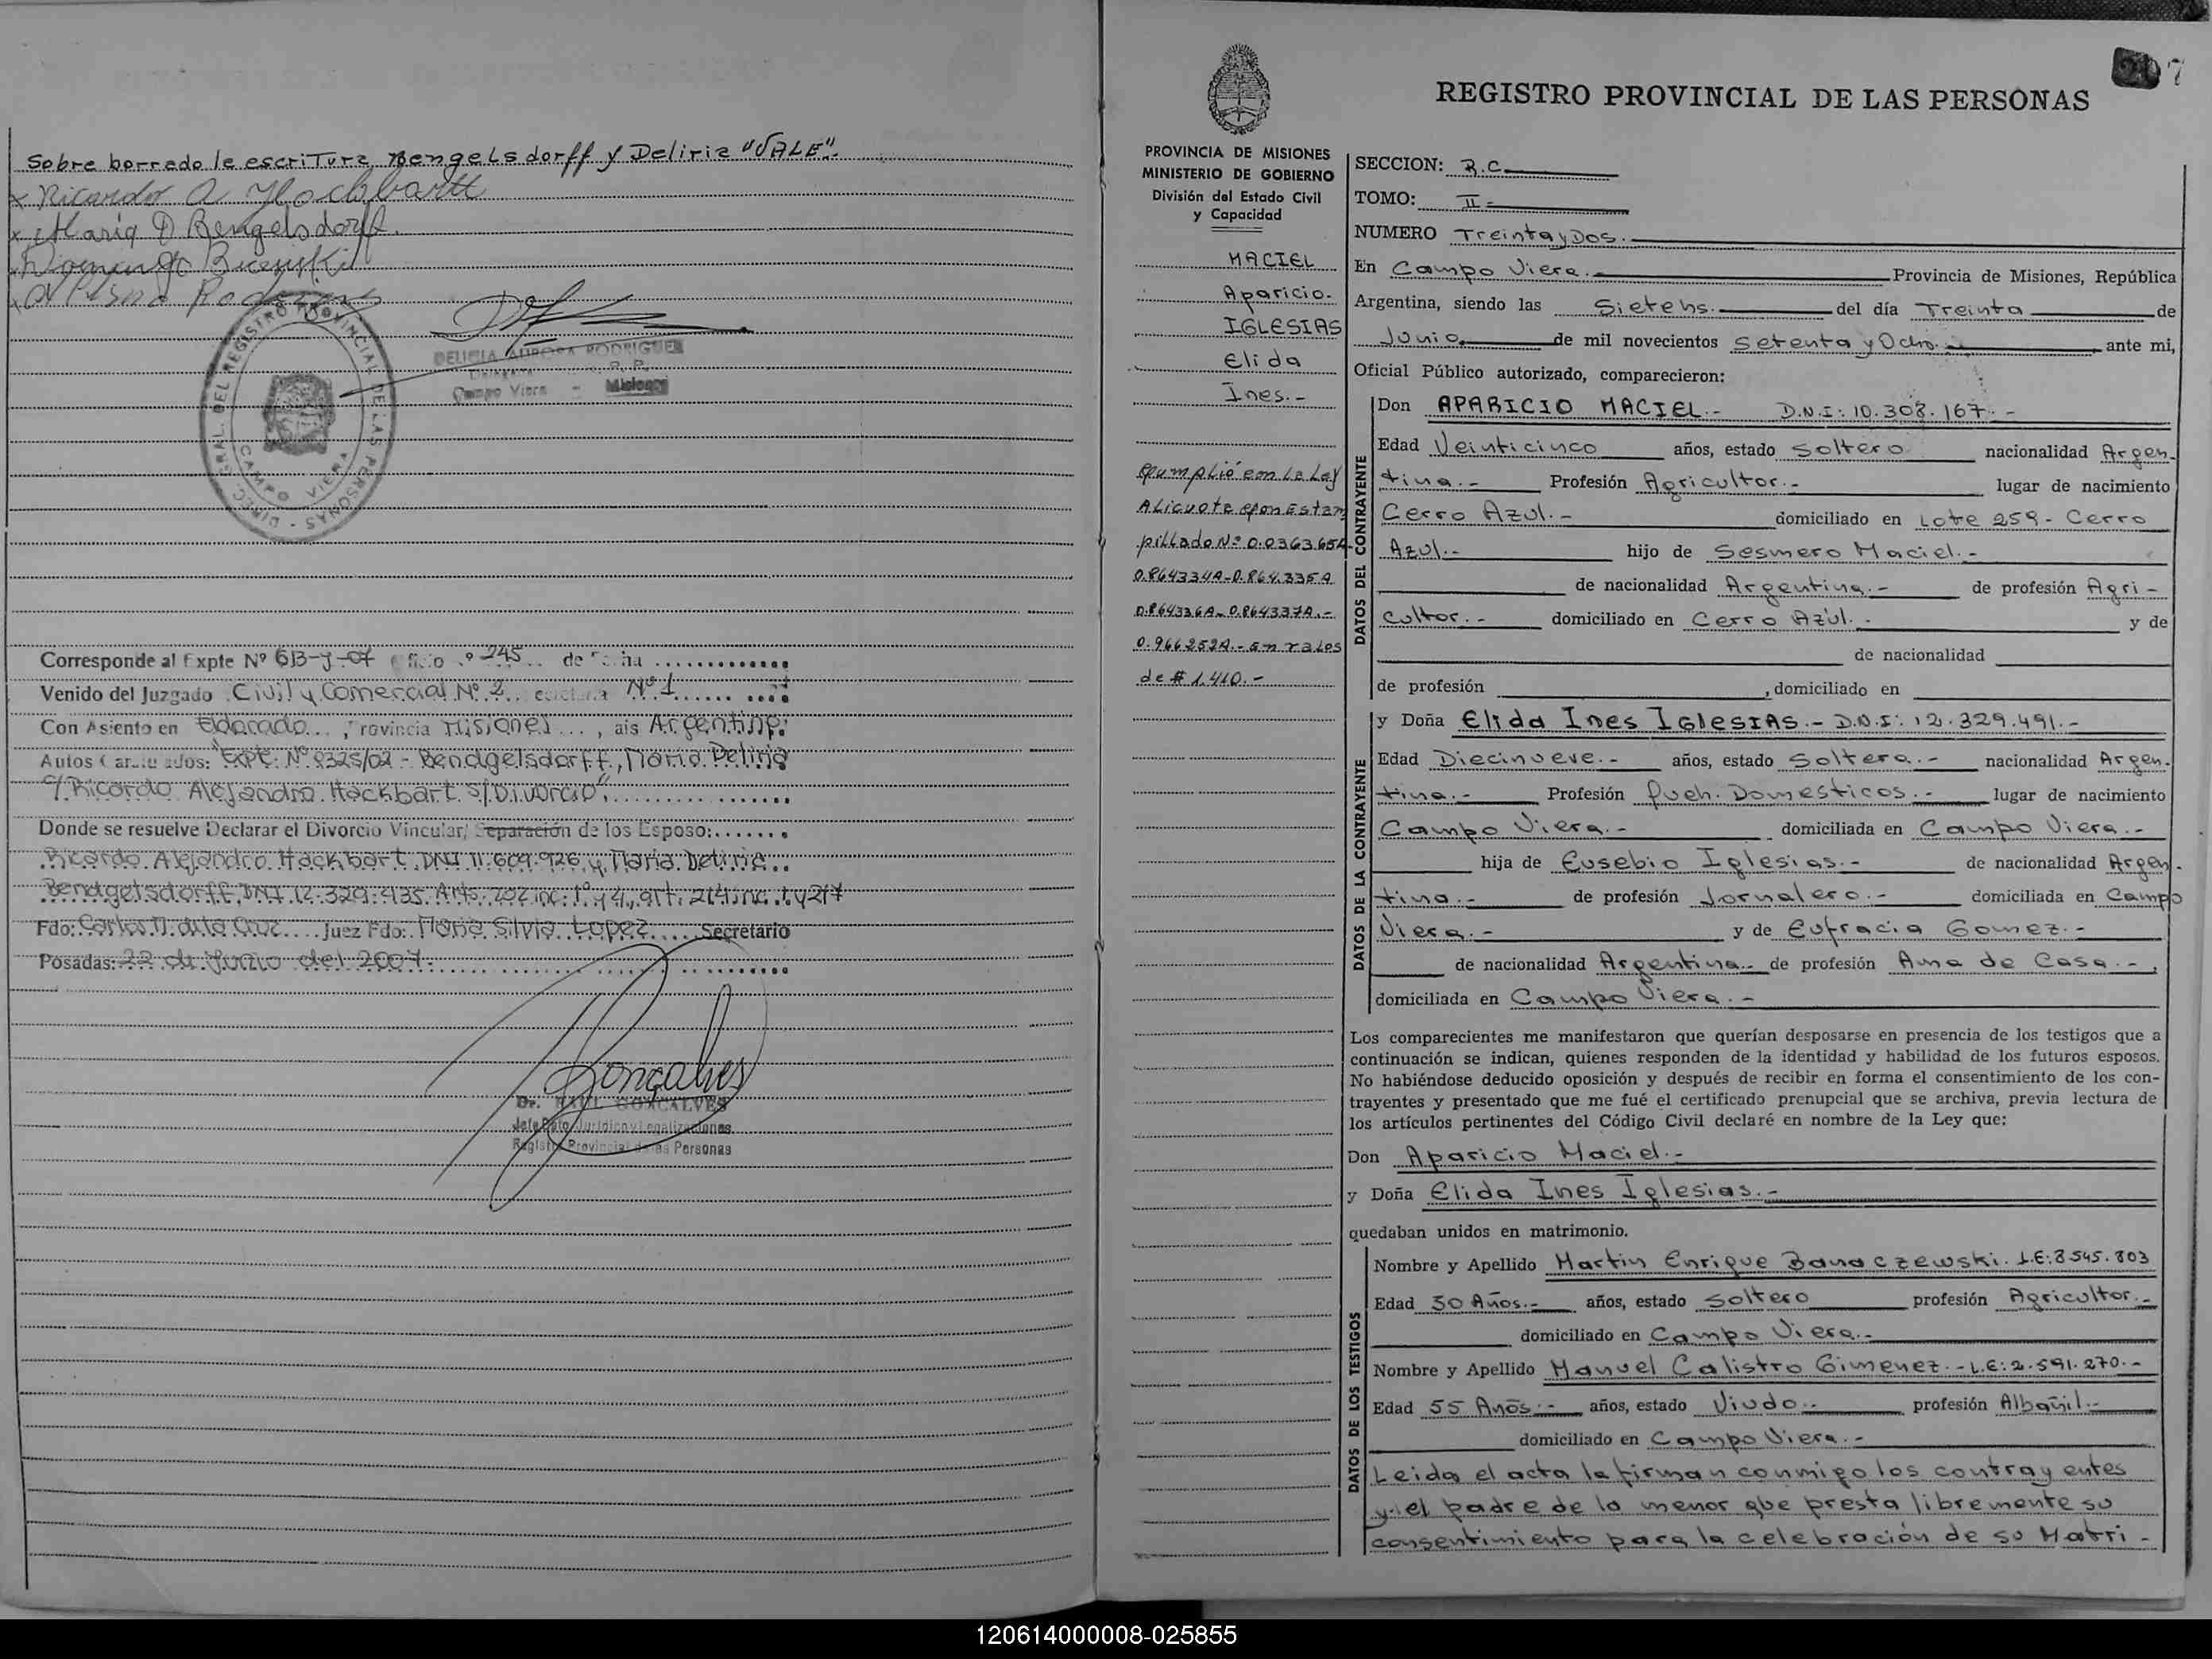 Sobre borrado le escritura Bengelsdorff y Deliria "VALE".
Ricardo A Hochbartt
Maria D Bengelsdorff.
Domingo
DIREC. GRAL. DEL REGISTRO PROVINCIAL DE LAS PERSONAS
CAMPO VIERA
DELICIA AURORA RODRIGUEZ
Campo Viera - Misiones
Corresponde al Expte Nº 613-y-07 Oficio Nº 245 de fecha
Venido del Juzgado Civil y Comercial Nº 2 Nº 1
Con Asiento en Eldorado, Provincia Misiones, Pais Argentina.
Autos Caratulados: "Expte. Nº 0325/02 - Bendgelsdorff, Maria Deliria
c/ Ricardo Alejandro Hackbart s/Divorcio"
Donde se resuelve Declarar el Divorcio Vincular/ Separación de los Esposo:
Ricardo Alejandro Hackbart DNI 11.609.926 y Maria Deliria
Bendgelsdorff, DNI 12.329.435. Arts. 202 inc. 1º y 4, art. 214 inc. 1 y 217
Fdo: Carlos Juez Fdo: Maria Silvia Lopez Secretario
Posadas: 22 de Junio del 2007.
Gonçalves
Dr. RAUL GONCALVES
Jefe Dpto. Jurídico y Legalizaciones
Registro Provincial de las Personas
207
REGISTRO PROVINCIAL DE LAS PERSONAS
PROVINCIA DE MISIONES
MINISTERIO DE GOBIERNO
División del Estado Civil
y Capacidad
MACIEL
Aparicio.
IGLESIAS
Elida
Ines.-
Cumplió con la Ley
Alicuota con Estam
pillado Nº 0.0363.654
0.864334A-0.864.335A
0.864336A-0.864337A.-
0.966252A.- en valos
de $ 1.410.-
SECCION: R.C.
TOMO: II-
NUMERO Treinta y Dos.
En Campo Viera. Provincia de Misiones, República
Argentina, siendo las Siete hs. del día Treinta de
Junio de mil novecientos Setenta y Ocho. ante mi,
Oficial Público autorizado, comparecieron:
DATOS DEL CONTRAYENTE
Don APARICIO MACIEL.- D.N.I: 10.308.167.-
Edad Veinticinco años, estado Soltero nacionalidad Argen-
tina.- Profesión Agricultor.- lugar de nacimiento
Cerro Azul.- domiciliado en Lote 259- Cerro
Azul.- hijo de Sesmero Maciel.-
de nacionalidad Argentina.- de profesión Agri-
cultor.- domiciliado en Cerro Azúl.- y de
de nacionalidad
de profesión , domiciliado en
DATOS DE LA CONTRAYENTE
y Doña Elida Ines IGlesIAS.- D.N.I: 12.329.491.-
Edad Diecinueve.- años, estado Soltera.- nacionalidad Argen-
tina.- Profesión Queh. Domesticos.- lugar de nacimiento
Campo Viera.- domiciliada en Campo Viera.-
hija de Eusebio Iglesias.- de nacionalidad Argen-
tina.- de profesión Jornalero.- domiciliada en Campo
Viera.- y de Eufracia Gomez.-
de nacionalidad Argentina.- de profesión Ama de Casa.-,
domiciliada en Campo Viera.-
Los comparecientes me manifestaron que querían desposarse en presencia de los testigos que a
continuación se indican, quienes responden de la identidad y habilidad de los futuros esposos.
No habiéndose deducido oposición y después de recibir en forma el consentimiento de los con-
trayentes y presentado que me fué el certificado prenupcial que se archiva, previa lectura de
los artículos pertinentes del Código Civil declaré en nombre de la Ley que:
Don Aparicio Maciel.-
y Doña Elida Ines Iglesias.-
quedaban unidos en matrimonio.
DATOS DE LOS TESTIGOS
Nombre y Apellido Martin Enrique Banaczewski. L.E: 8.545.803
Edad 30 Años.- años, estado Soltero profesión Agricultor.-
domiciliado en Campo Viera.-
Nombre y Apellido Manuel Calistro Gimenez.- L.E: 2.591.270.-
Edad 55 Años.- años, estado Viudo.- profesión Albañil.-
domiciliado en Campo Viera.-
Leida el acta la firman conmigo los contrayentes
y el padre de la menor que presta libremente su
consentimiento para la celebración de su Matri-
120614000008-025855